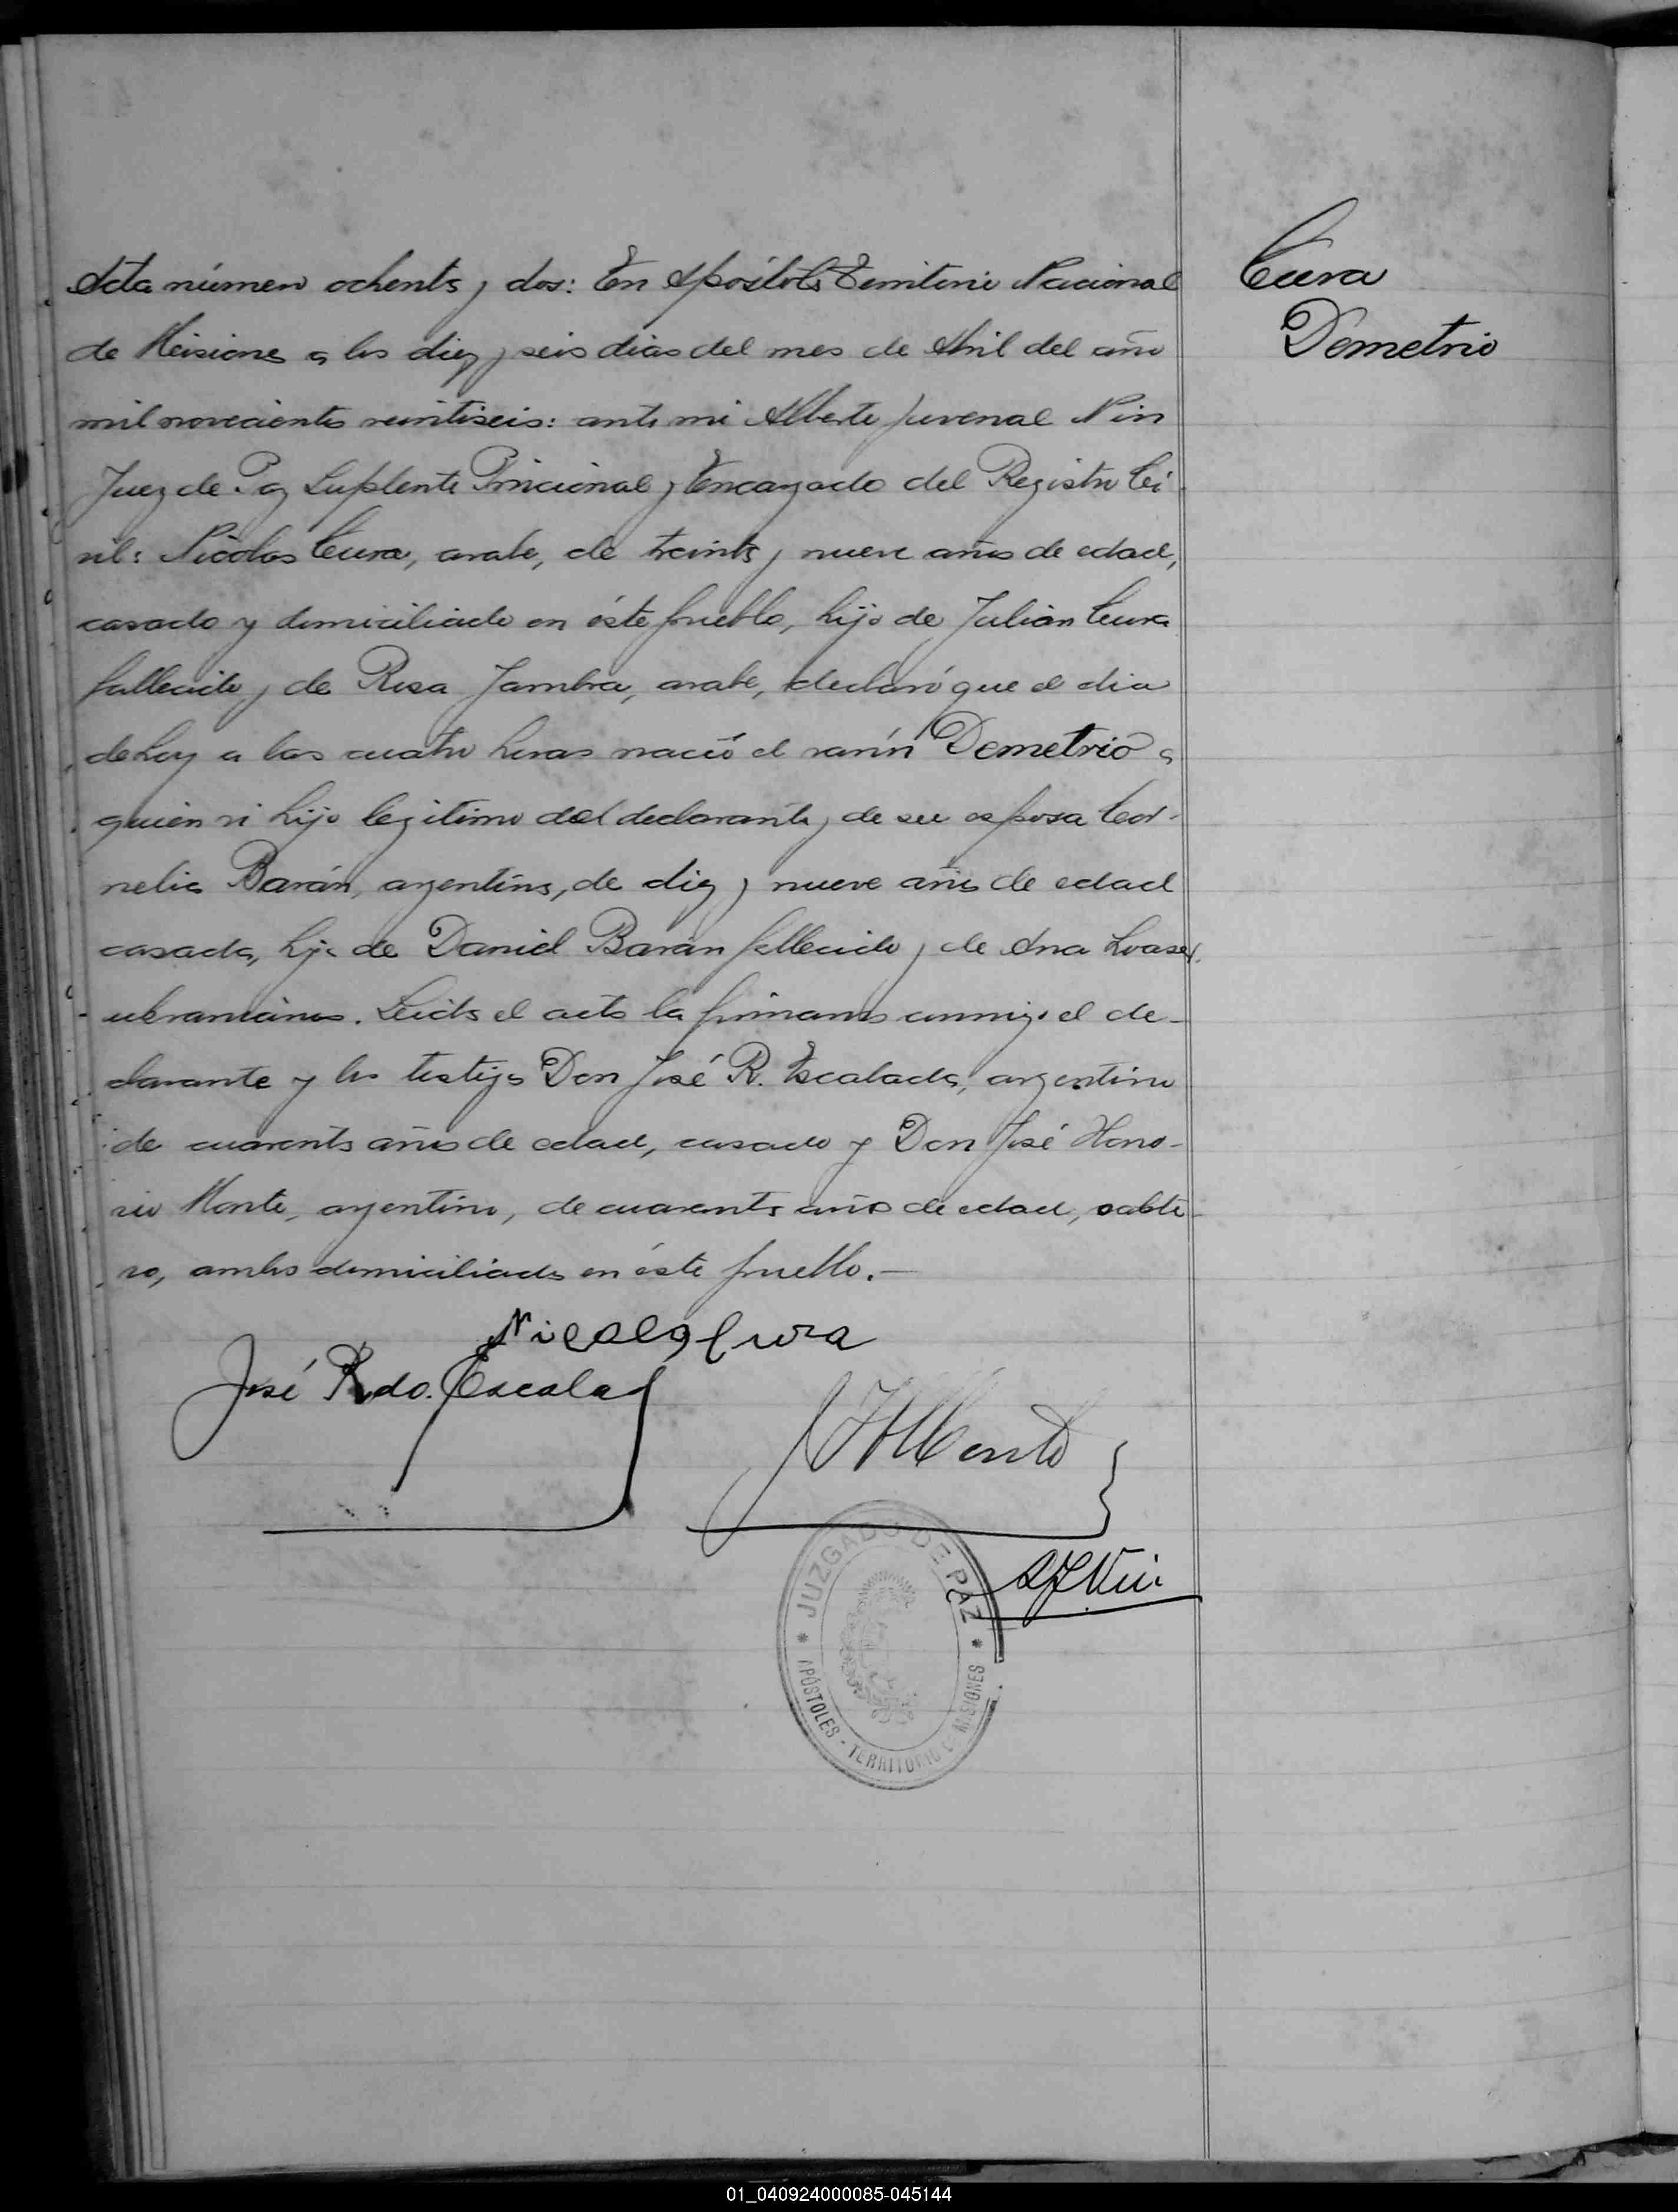 Acta número ochenta y dos: En Apóstoles Territorio Nacional
de Misiones a los diez y seis dias del mes de Abril del año
mil novecientos veintiseis: ante mi Alberto Juvenal Nin
Juez de Paz Suplente Provicional y Encargado del Registro Ci-
vil: Nicolas Cura, arabe, de treinta y nueve años de edad,
casado y domiciliado en éste pueblo, hijo de Julián Cura
fallecido y de Rosa Jambra, arabe, declaró que el dia
de hoy a las cuatro horas nació el varón Demetrio a
quien vi hijo legitimo del declarante y de su esposa Cor-
nelia Barán, argentina, de diez y nueve años de edad
casada, hija de Daniel Barán fallecido y de Ana
ukranianos. Leida el acta la firmamos conmigo el de-
clarante y los testigos Don José R. Escalada, argentino
de cuarenta años de edad, casado y Don José Hono-
rio Monte, argentino, de cuarenta años de edad, solte-
ro, ambos domiciliados en éste pueblo.—
Cura
Demetrio
Nicolas Cura
José Rdo. Escalad
JHMonte
AJNin
JUZGADO DE PAZ
APÓSTOLES - TERRITORIO DE MISIONES
01_040924000085-045144